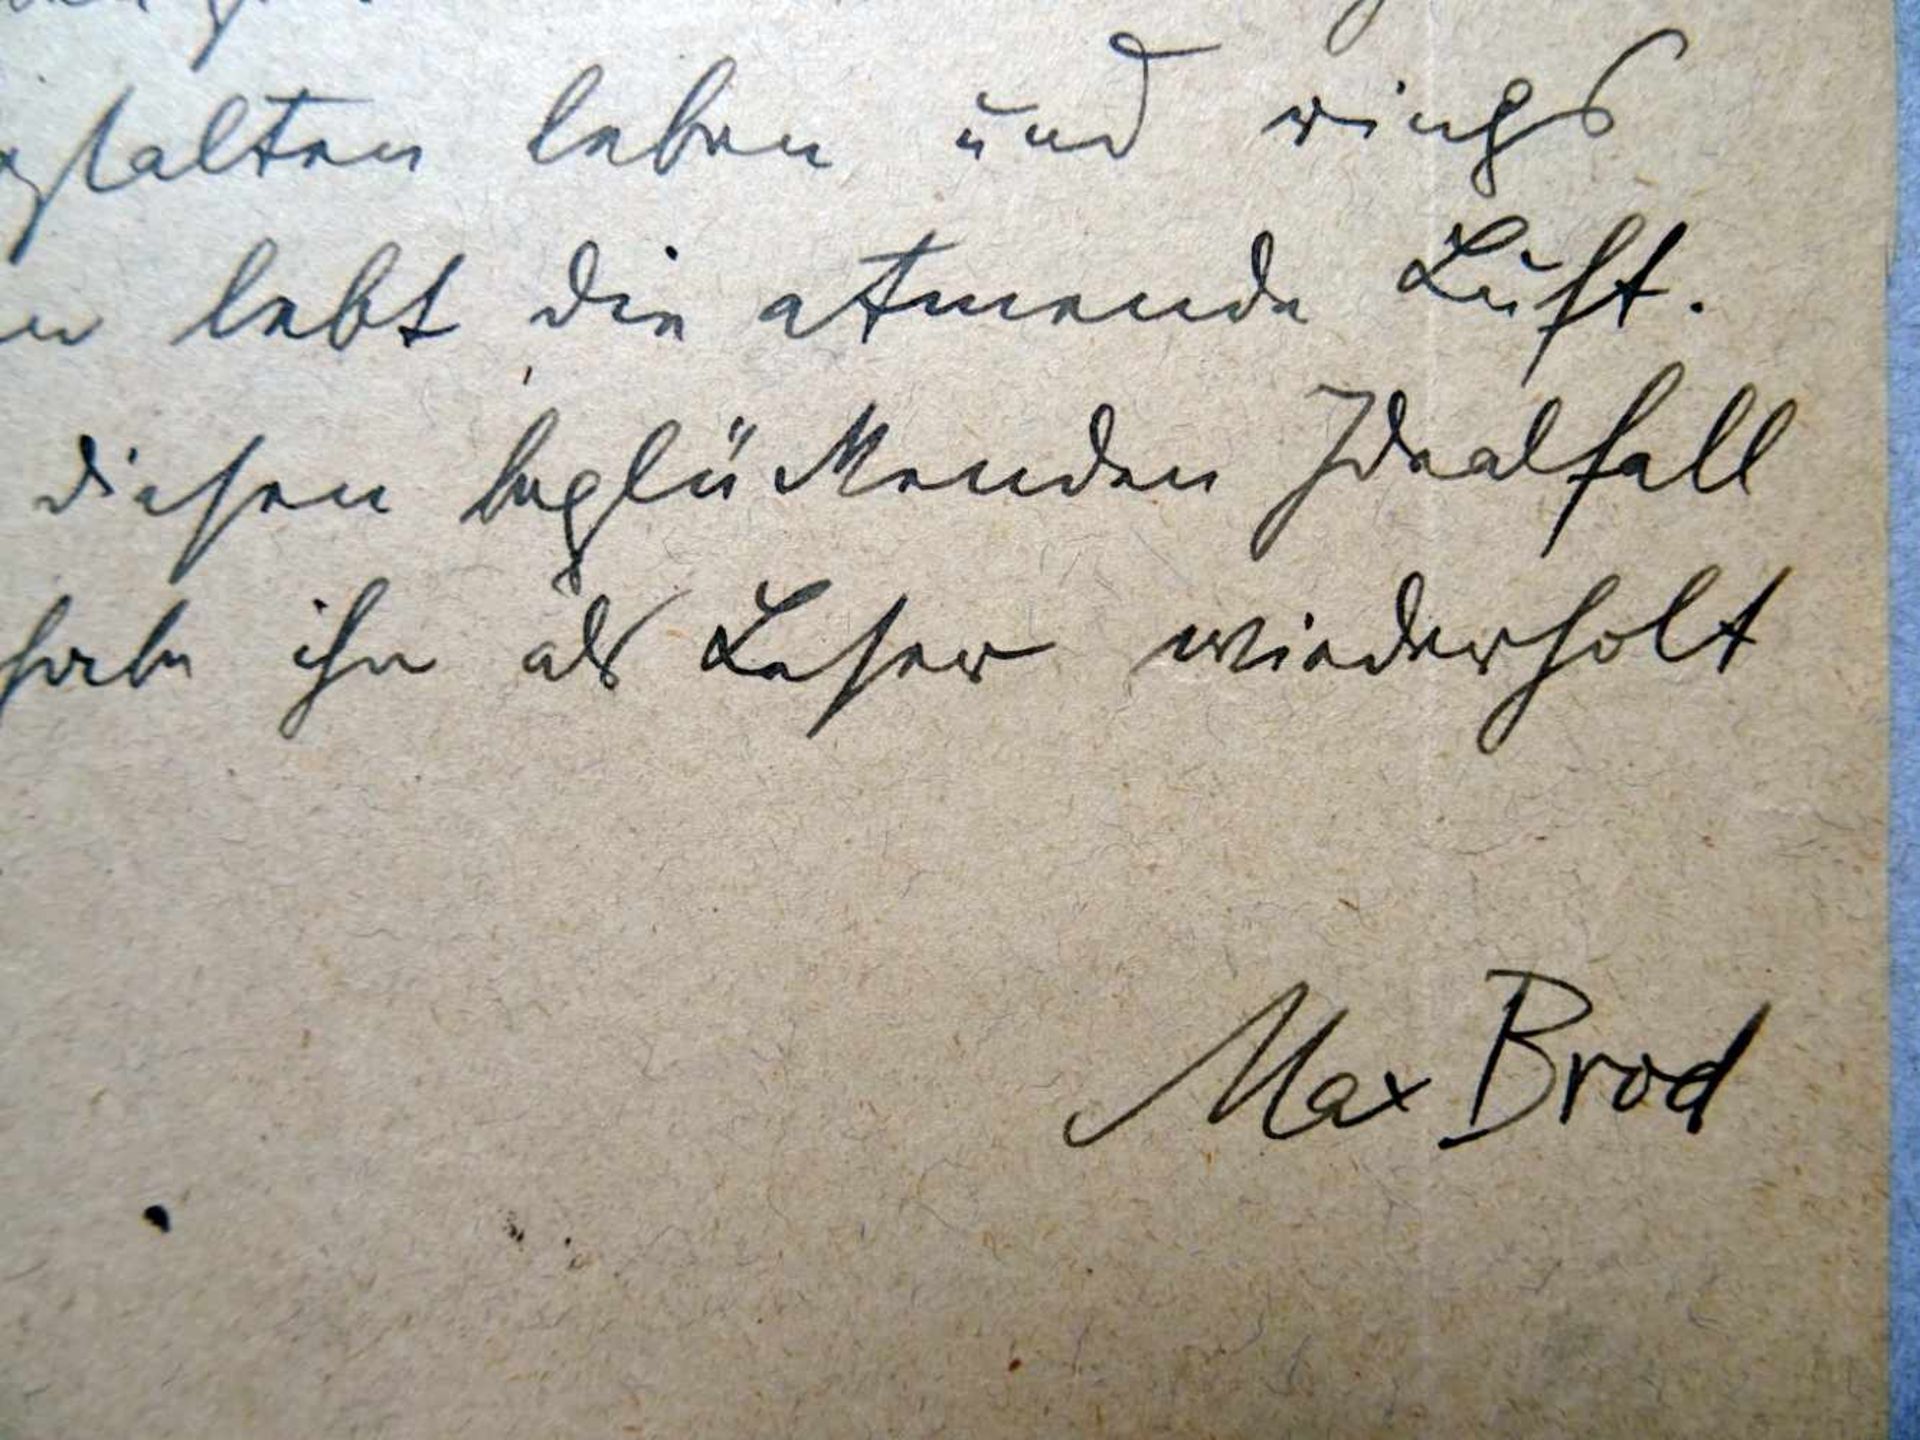 gestalten leben und rings
lebt die atmende Luft.
diesen beglückenden Idealfall
habe ihn als Leser wiederholt
Max Brod